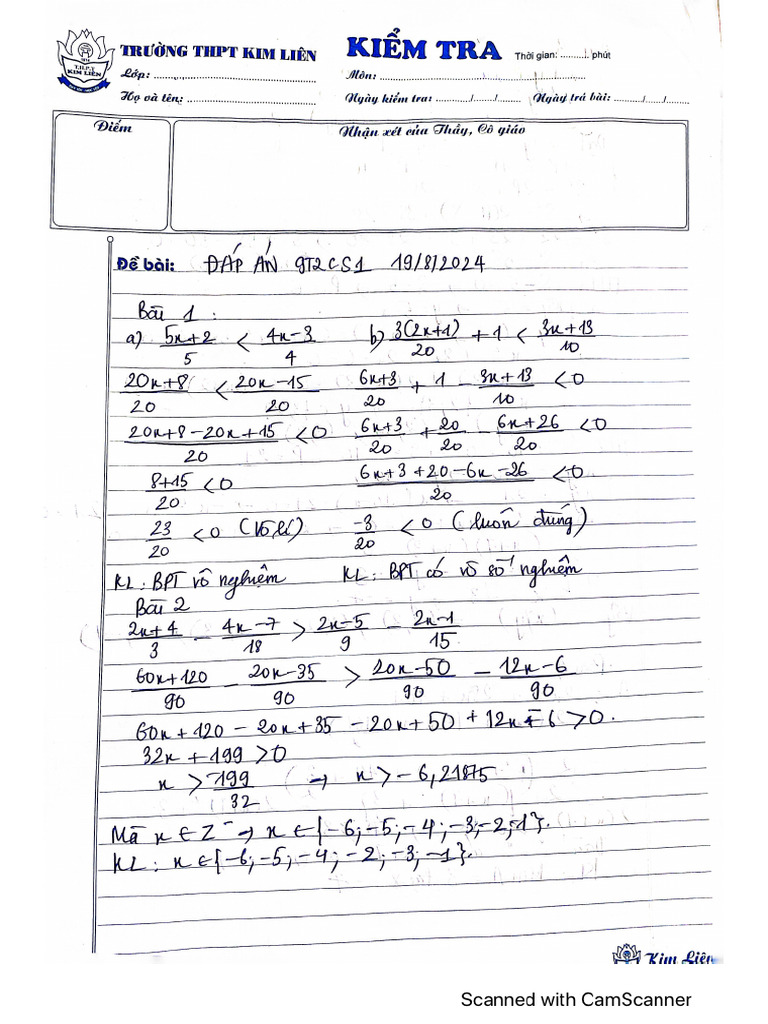 T.H.P.T
KIM LIÊN
TRƯỜNG THPT KIM LIÊN
KIỂM TRA
Thời gian: ........... phút
Lớp: ................................
Môn: ................................
Họ và tên: ................................
Ngày kiểm tra: ......../....../........
Ngày trả bài: ......../....../........
Điểm
Nhận xét của Thầy, Cô giáo
Đề bài: ĐÁP ÁN 9T2CS1 19/8/2024
Bài 1:
a) (5x+2)/5 < (4x-3)/4
(20x+8)/20 < (20x-15)/20
(20x+8-20x+15)/20 < 0
(8+15)/20 < 0
23/20 < 0 (Vô lí)
KL: BPT vô nghiệm
b) 3(2x+1)/20 + 1 < (3x+13)/10
(6x+3)/20 + 1 - (3x+13)/10 < 0
(6x+3)/20 + 20/20 - (6x+26)/20 < 0
(6x+3+20-6x-26)/20 < 0
-3/20 < 0 (luôn đúng)
KL: BPT có vô số nghiệm
Bài 2
(2x+4)/3 - (4x-7)/18 > (2x-5)/9 - (2x-1)/15
(60x+120)/90 - (20x-35)/90 > (20x-50)/90 - (12x-6)/90
60x+120 - 20x+35 - 20x+50 + 12x - 6 > 0.
32x + 199 > 0
x > -199/32 → x > -6,21875
Mà x ∈ Z⁻ → x ∈ {-6;-5;-4;-3;-2;-1}.
KL: x ∈ {-6;-5;-4;-2;-3;-1}.
Kim Liên
Scanned with CamScanner